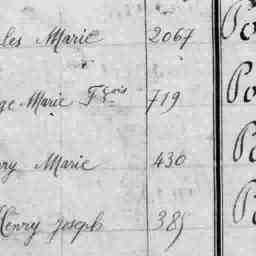 les Marie 2067
ge Marie Fçois 719
ry Marie 430
Henry Joseph 385